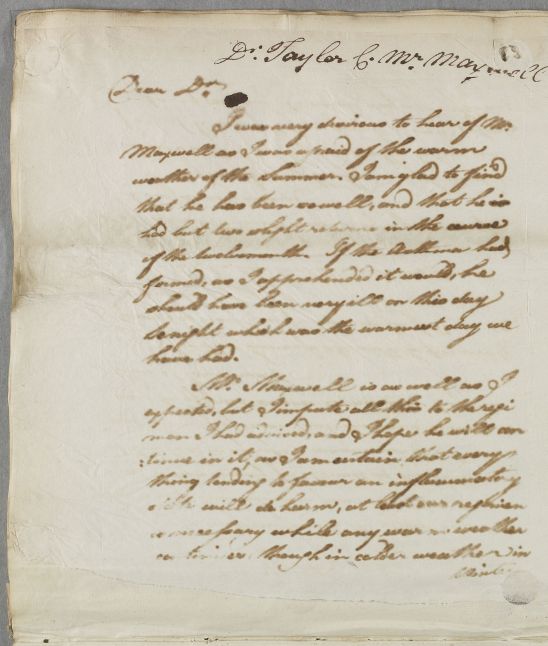 Dr. Taylor C. Mr. Maxwell
Dear Dr.
I was very desirous to hear of Mr.
Maxwell as I was afraid of the warm
weather of the Summer. I am glad to find
that he has been so well, and that he is
had but two slight returns in the course
of the twelvemonth. If the Asthma had
formed, as I apprehended it would, he
should have been very ill on this day
senight which was the warmest day we
have had.
Mr. Maxwell is as well as I
expected, but I impute all this to the regi
men I had advised, and I hope he will con
:tinue in it, as I am certain that every
thing tending to favour an inflammatory
will do harm, at least our regimen
is necessary while any warm weather
continues though in colder weather in
Winter